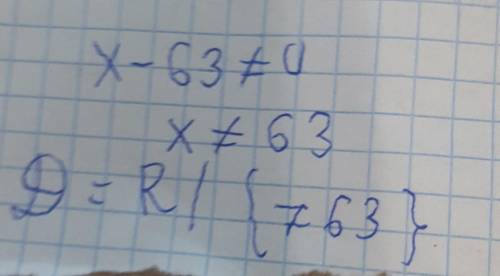 x - 63 ≠ 0
x ≠ 63
D = R / { ≠ 63 }